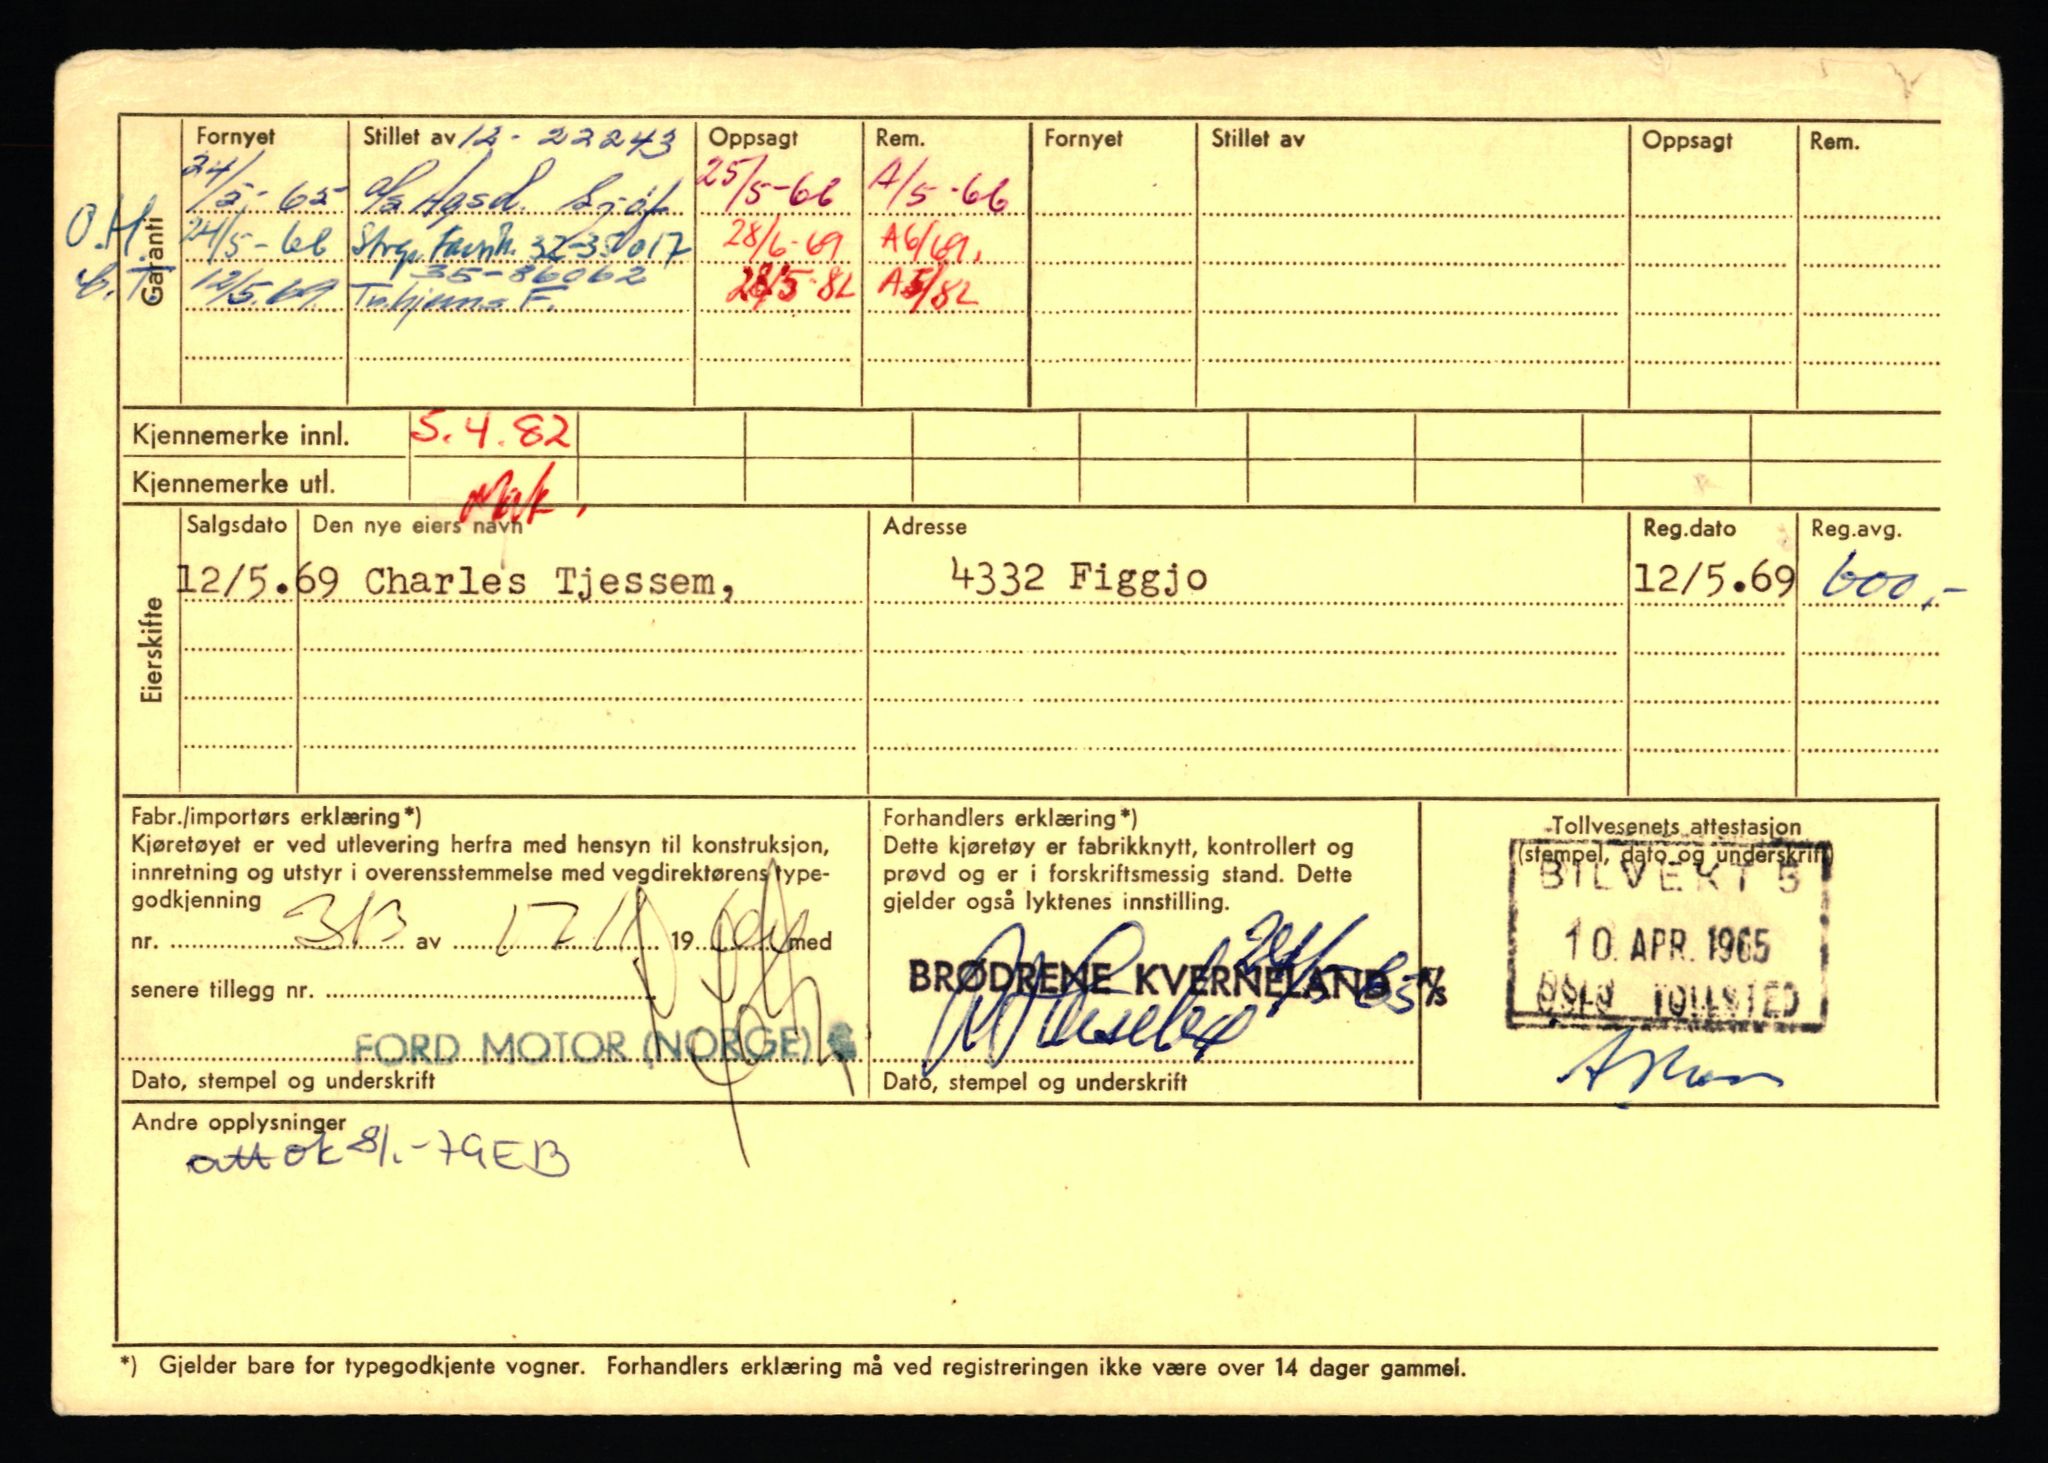 Fornyet Stillet av 12-22243 Oppsagt Rem. Fornyet Stillet av Oppsagt Rem.
Garanti
24/5-65 25/5-66 A/5-66
O.H. 24/5-66 32-35017 28/6-69 A6/69.
35-86062
12/5.69. 28/5-82 A5/82
Kjennemerke innl. 5.4.82
Kjennemerke utl.
Eierskifte
Salgsdato Den nye eiers navn Adresse Reg.dato Reg.avg.
12/5.69 Charles Tjessem, 4332 Figgjo 12/5.69 600,-
Fabr./importørs erklæring*)
Kjøretøyet er ved utlevering herfra med hensyn til konstruksjon,
innretning og utstyr i overensstemmelse med vegdirektørens type-
godkjenning
nr. 313 av 19 med
senere tillegg nr.
FORD MOTOR (NORGE)
Dato, stempel og underskrift
Forhandlers erklæring*)
Dette kjøretøy er fabrikknytt, kontrollert og
prøvd og er i forskriftsmessig stand. Dette
gjelder også lyktenes innstilling.
24/5-65
BRØDRENE KVERNELAND A/S
Dato, stempel og underskrift
Tollvesenets attestasjon
(stempel, dato og underskrift)
BILVEKT 5
10. APR. 1965
OSLO TOLLSTED
Andre opplysninger
att ok 8/1-79 EB
*) Gjelder bare for typegodkjente vogner. Forhandlers erklæring må ved registreringen ikke være over 14 dager gammel.